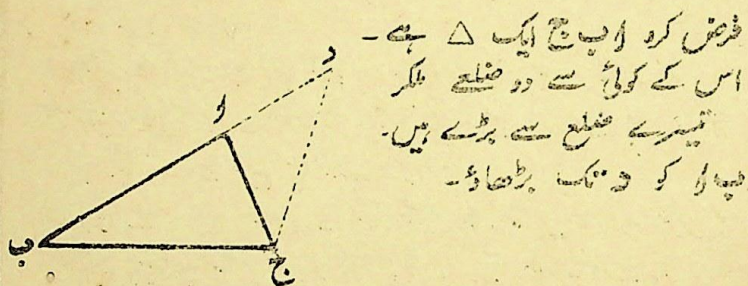 فرض کرو ا ب ج ایک △ ہے۔
اس کے کوئی سے دو ضلعے ملکر
تیسرے ضلع سے بڑے ہیں۔
ب ا کو د تک بڑھاؤ۔
د
ا
ب
ج